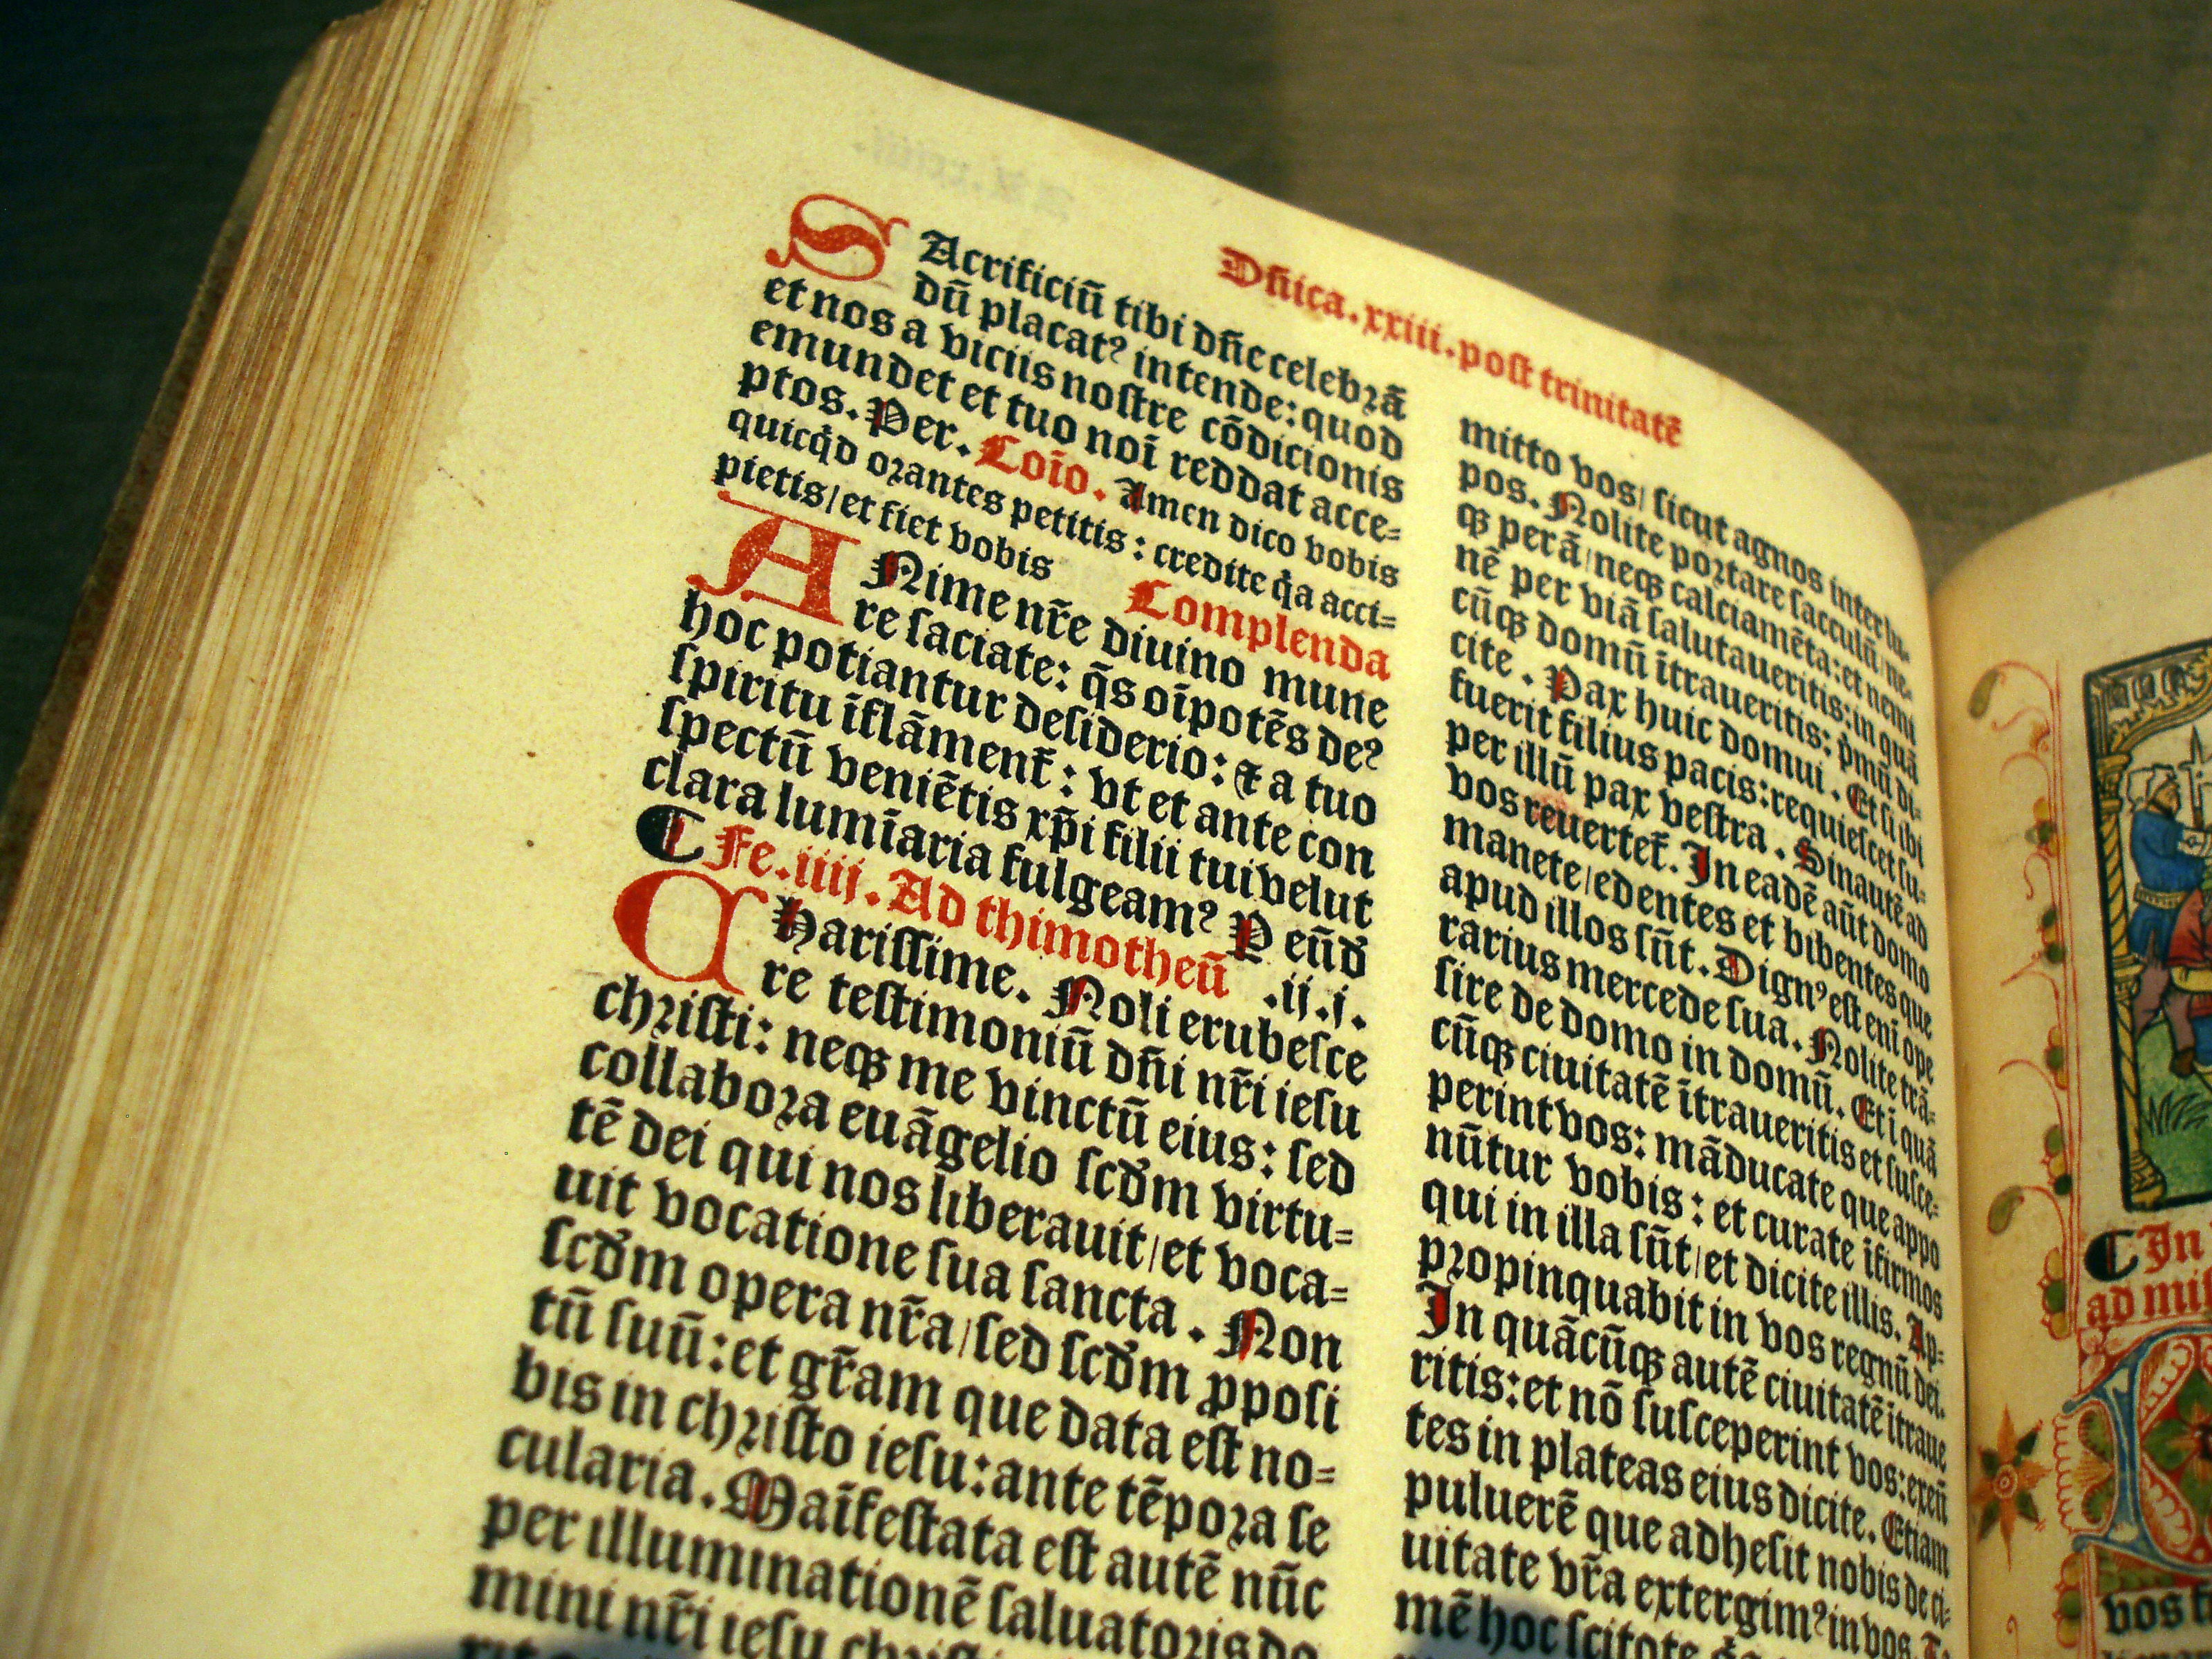 Dn̄ica.xxiii.post trinitatē
SAcrificiū tibi dn̄e celebrā
dū placatꝰ intende: quod
et nos a viciis nostre cōdicionis
emundet et tuo noī reddat acce-
ptos. Per. Coīo. Amen dico vobis
quicq̇d orantes petitis: credite q̇a acci-
pietis/et fiet vobis Complenda
ANime nr̄e diuino mune
re saciate: q̄s oīpotēs deꝰ
hoc potiantur desiderio: ⁊ a tuo
spiritu īflāment̄: vt et ante con
spectū veniētis xp̄i filii tui velut
clara lumīaria fulgeamꝰ P eūd
¶ Fe.iiij. Ad thimotheū .ij.j.
CHarissime. Noli erubesce
re testimoniū dn̄i nr̄i iesu
christi: neqꝫ me vinctū eius: sed
collabora euāgelio scdm virtu-
tē dei qui nos liberauit/et voca-
uit vocatione sua sancta. Non
scdm opera nr̄a/sed scdm ꝓposi
tū suū: et gr̄am que data est no-
bis in christo iesu: ante tēpora se
cularia. Maīfestata est autē nūc
per illuminationē saluatoris do
mini nr̄i iesu
mitto vos/ sicut agnos inter lu-
pos. Nolite portare sacculū/ne-
qꝫ perā/neqꝫ calciamēta: et nemi
nē per viā salutaueritis: in quā
cūqꝫ domū ītraueritis: p̄mū di-
cite. Pax huic domui. Et si ibi
fuerit filius pacis: requiescet su-
per illū pax vestra. Sin autē ad
vos reuertet̄. In eadē aūt domo
manete/edentes et bibentes que
apud illos sūt. Dignꝰ est enī ope
rarius mercede sua. Nolite trā-
sire de domo in domū. Et ī quā
cūqꝫ ciuitatē ītraueritis et susce-
perint vos: māducate que appo
nūtur vobis: et curate īfirmos
qui in illa sūt/et dicite illis. Ap-
propinquabit in vos regnū dei.
In quācūqꝫ autē ciuitatē ītraue
ritis: et nō susceperint vos: exeū
tes in plateas eius dicite. Etiam
puluerē que adhesit nobis de ci-
uitate vr̄a extergimꝰ in vos. T-
mē hoc scitote
¶ In
ad mis
vos